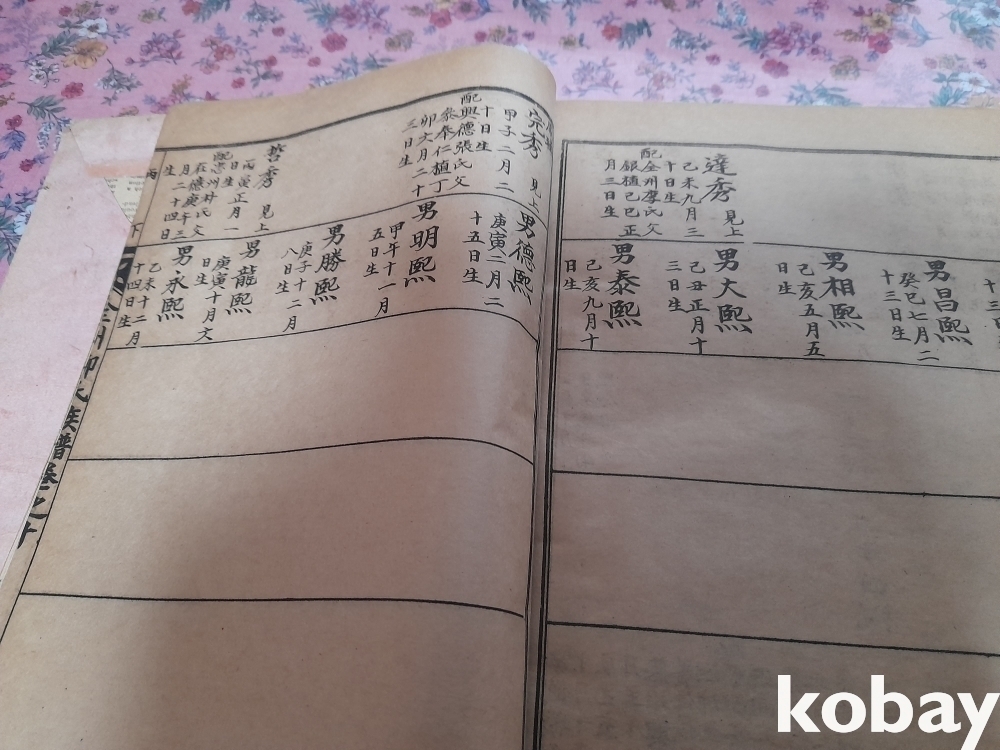 達秀 見上
己未九月三
十日生
配全州李氏父
銀植己巳正
月三日生
十三
男昌熙
癸巳七月二
十三日生
男相熙
己亥五月五
日生
男大熙
己丑正月十
三日生
男泰熙
己亥九月十
日生
完秀 見上
甲子二月二
十日生
配興德張氏父
泰奉仁植丁
卯六月二十
三日生
秀 見上
丙寅正月一
日生
配忠州朴氏父
在德庚午三
月二十四日
生
男德熙
庚寅二月二
十五日生
男明熙
甲午十一月
五日生
男勝熙
庚子十二月
八日生
男龍熙
庚寅十月
日生
男永熙
乙未十二月
十四日生
下
州柳氏族譜卷之十
kobay